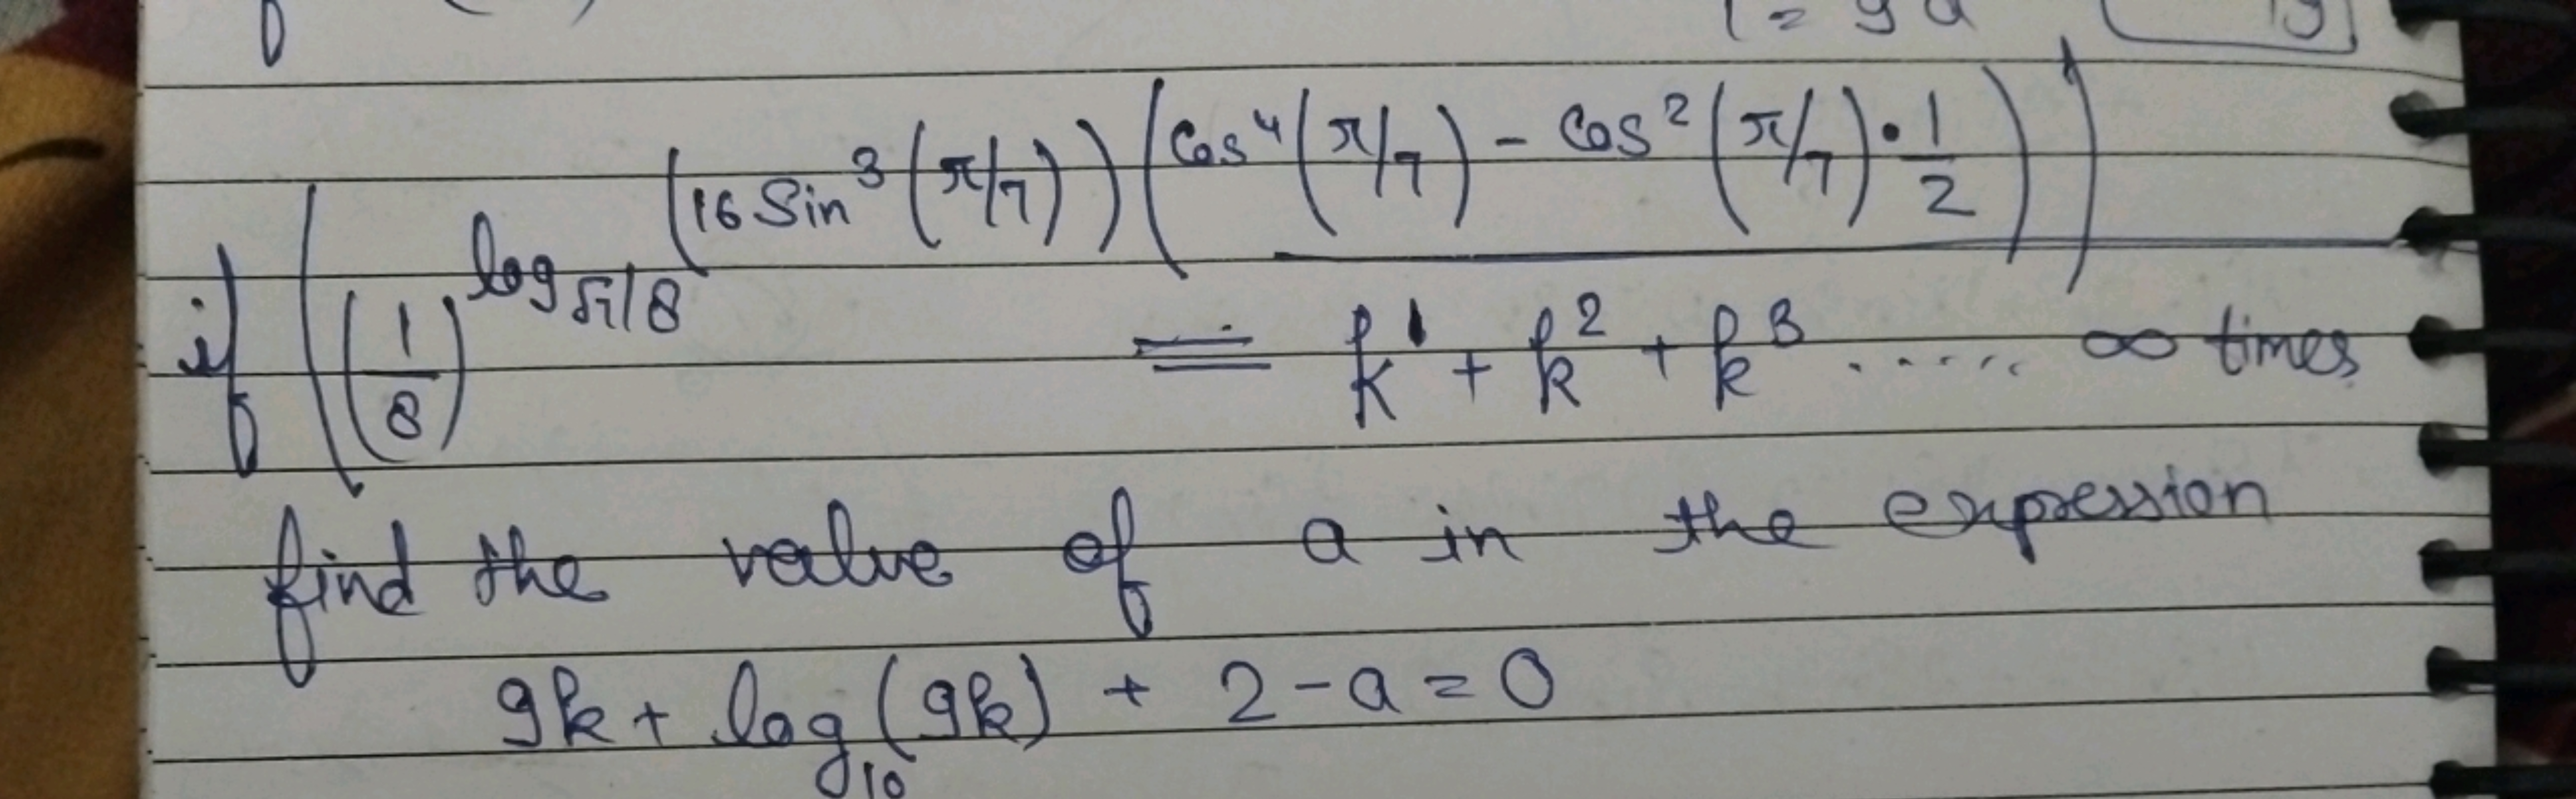 if ((1/8)^log_{√7/8} (16 Sin³(π/7)) (Cos⁴(π/7) - Cos²(π/7)·1/2))
= k¹ + k² + k³ ..... ∞ times
find the value of a in the expression
9k + log₁₀(9k) + 2 - a = 0